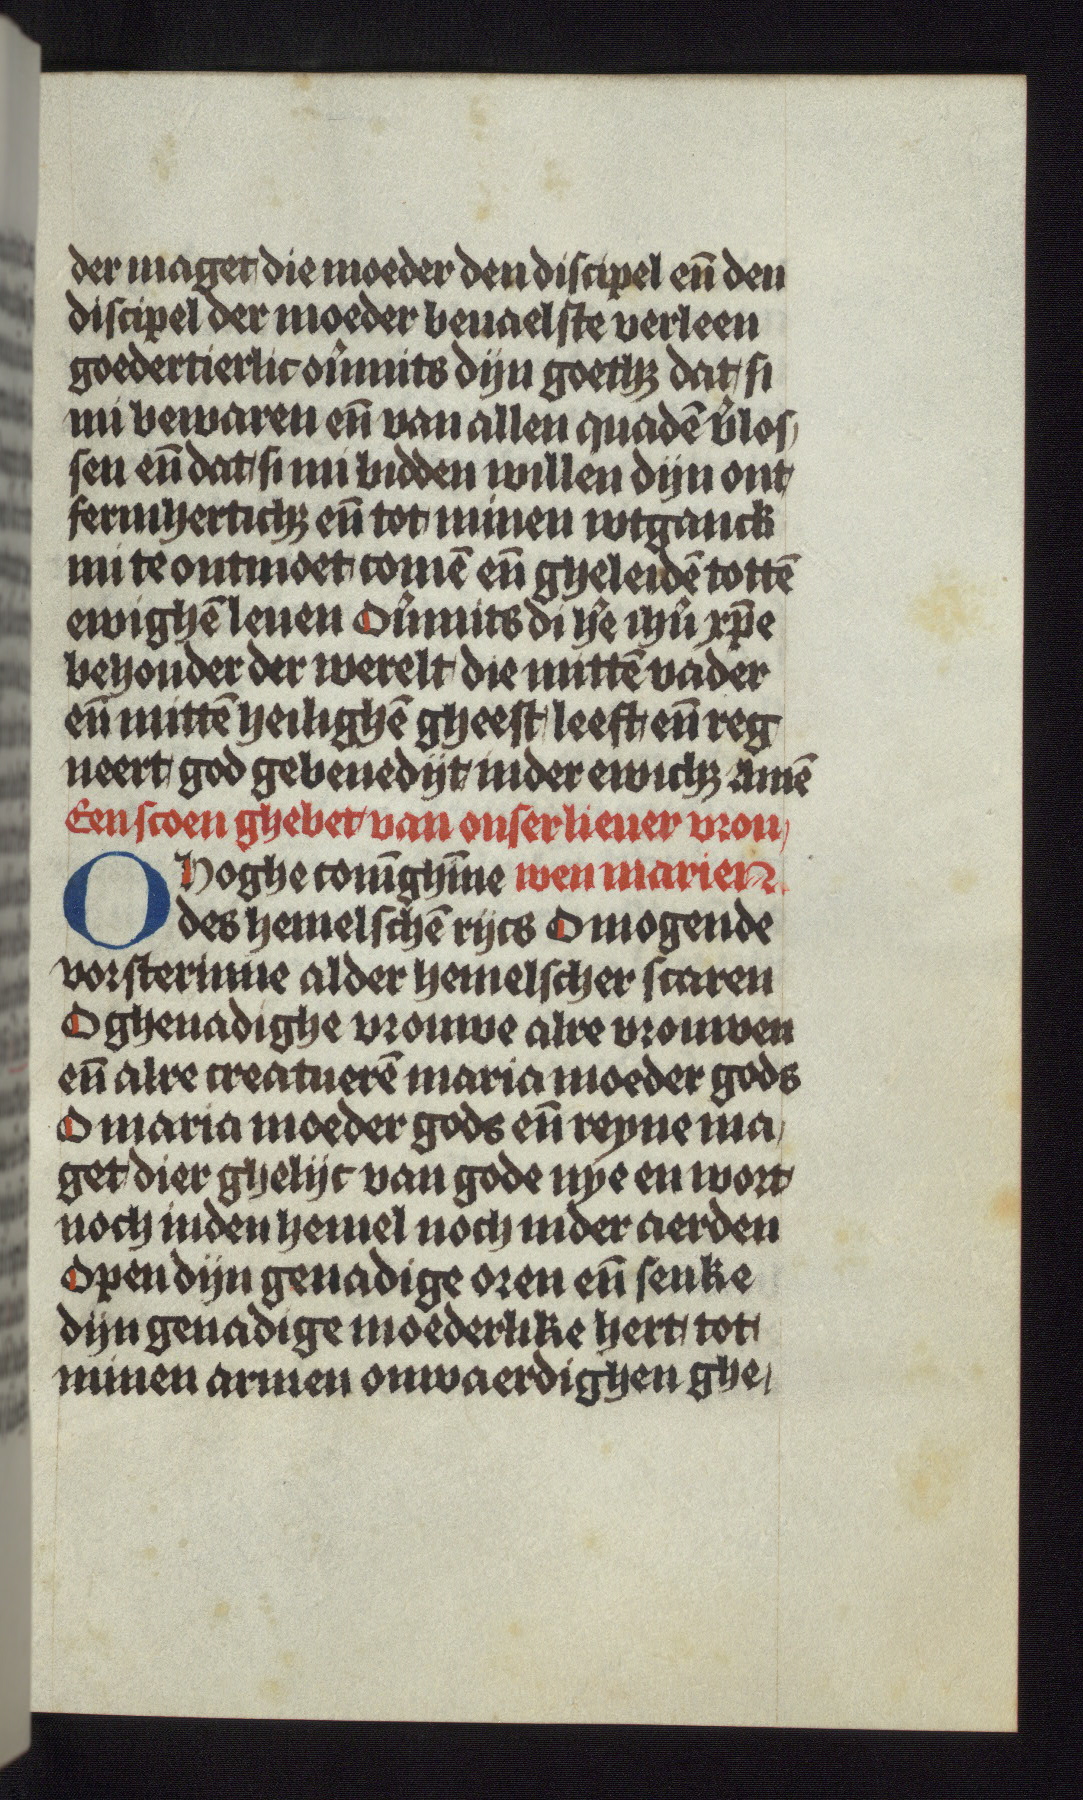 der maget die moeder den discipel en̄ den
discipel der moeder beuaelste verleen
goedertierlic ou̾mits dijn goethꝫ dat si
mi bewaren en̄ van allen quadē v̾los
sen en̄ dat si mi bidden willen dijn ont
fermhertichꝫ en̄ tot minen wtganck
mi te ontmoet comē en̄ gheleidē tottē
ewighē leuen Ou̾mits di h̾e ihu̾ xp̄e
behouder der werelt die mittē vader
en̄ mittē heilighē gheest leeft en̄ reg
neert god gebenedijt inder ewichꝫ Amē
Een scoen ghebet van onser lieuer vrou
O Hoghe coni̅ghi̅ne wen marien
des hemelschē rijcs O mogende
vorsterinne alder hemelscher scaren
O ghenadighe vrouwe alre vrouwen
en̄ alre creatuerē maria moeder gods
O maria moeder gods en̄ reyne ma
get dier ghelijc van gode nye en wort
noch inden hemel noch inder aerden
Open dijn genadige oren en̄ senke
dijn genadige moederlike hert tot
minen armen onwaerdighen ghe